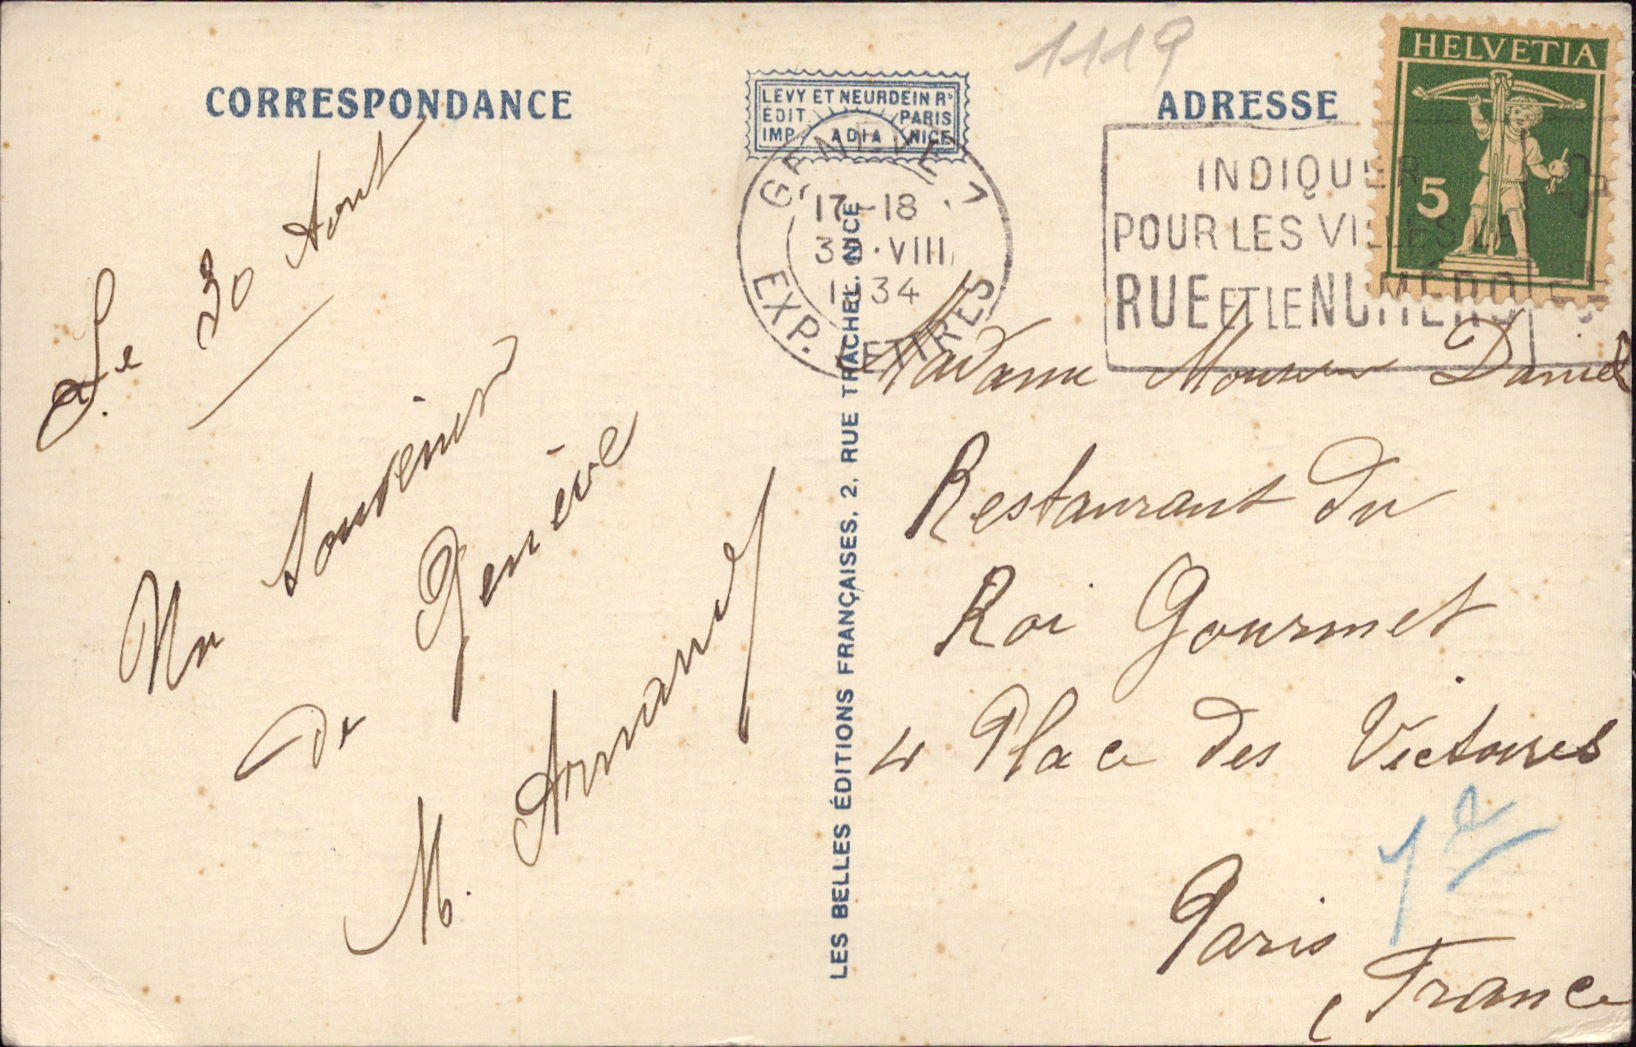 CORRESPONDANCE
Le 30 Aout
Un souvenir
de Genève
M. Armand
LEVY ET NEURDEIN RS
EDIT. PARIS
IMP. ADIA NICE
GENÈVE 1
17-18
30·VIII
1934
EXP. LETTRES
LES BELLES ÉDITIONS FRANÇAISES, 2, RUE TRACHEL, NICE
1119
ADRESSE
HELVETIA
5
INDIQUER
POUR LES VILLES LA
RUE ET LE NUMÉRO
Madame Daniel
Restaurant du
Roi Gourmet
4 Place des Victoires
1e
Paris
France